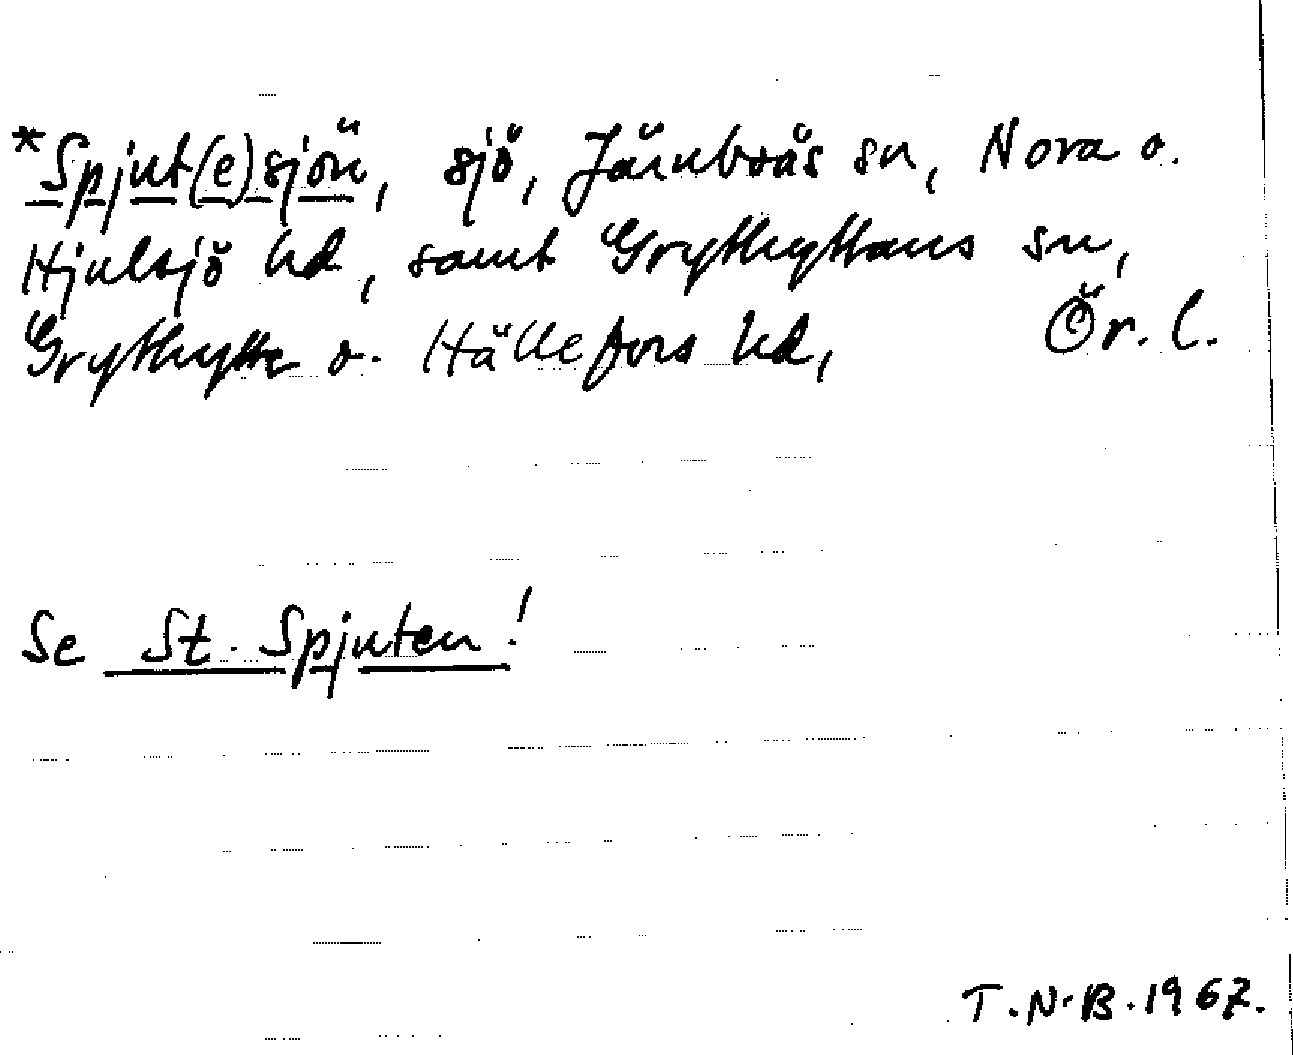 *Spjut(e)sjön, sjö, Järnboås sn, Nora o.
Hjulsjö hd, samt Grythyttans sn,
Grythytte o. Hällefors hd, Ör. l.
Se St. Spjuten!
T.N.B. 1967.